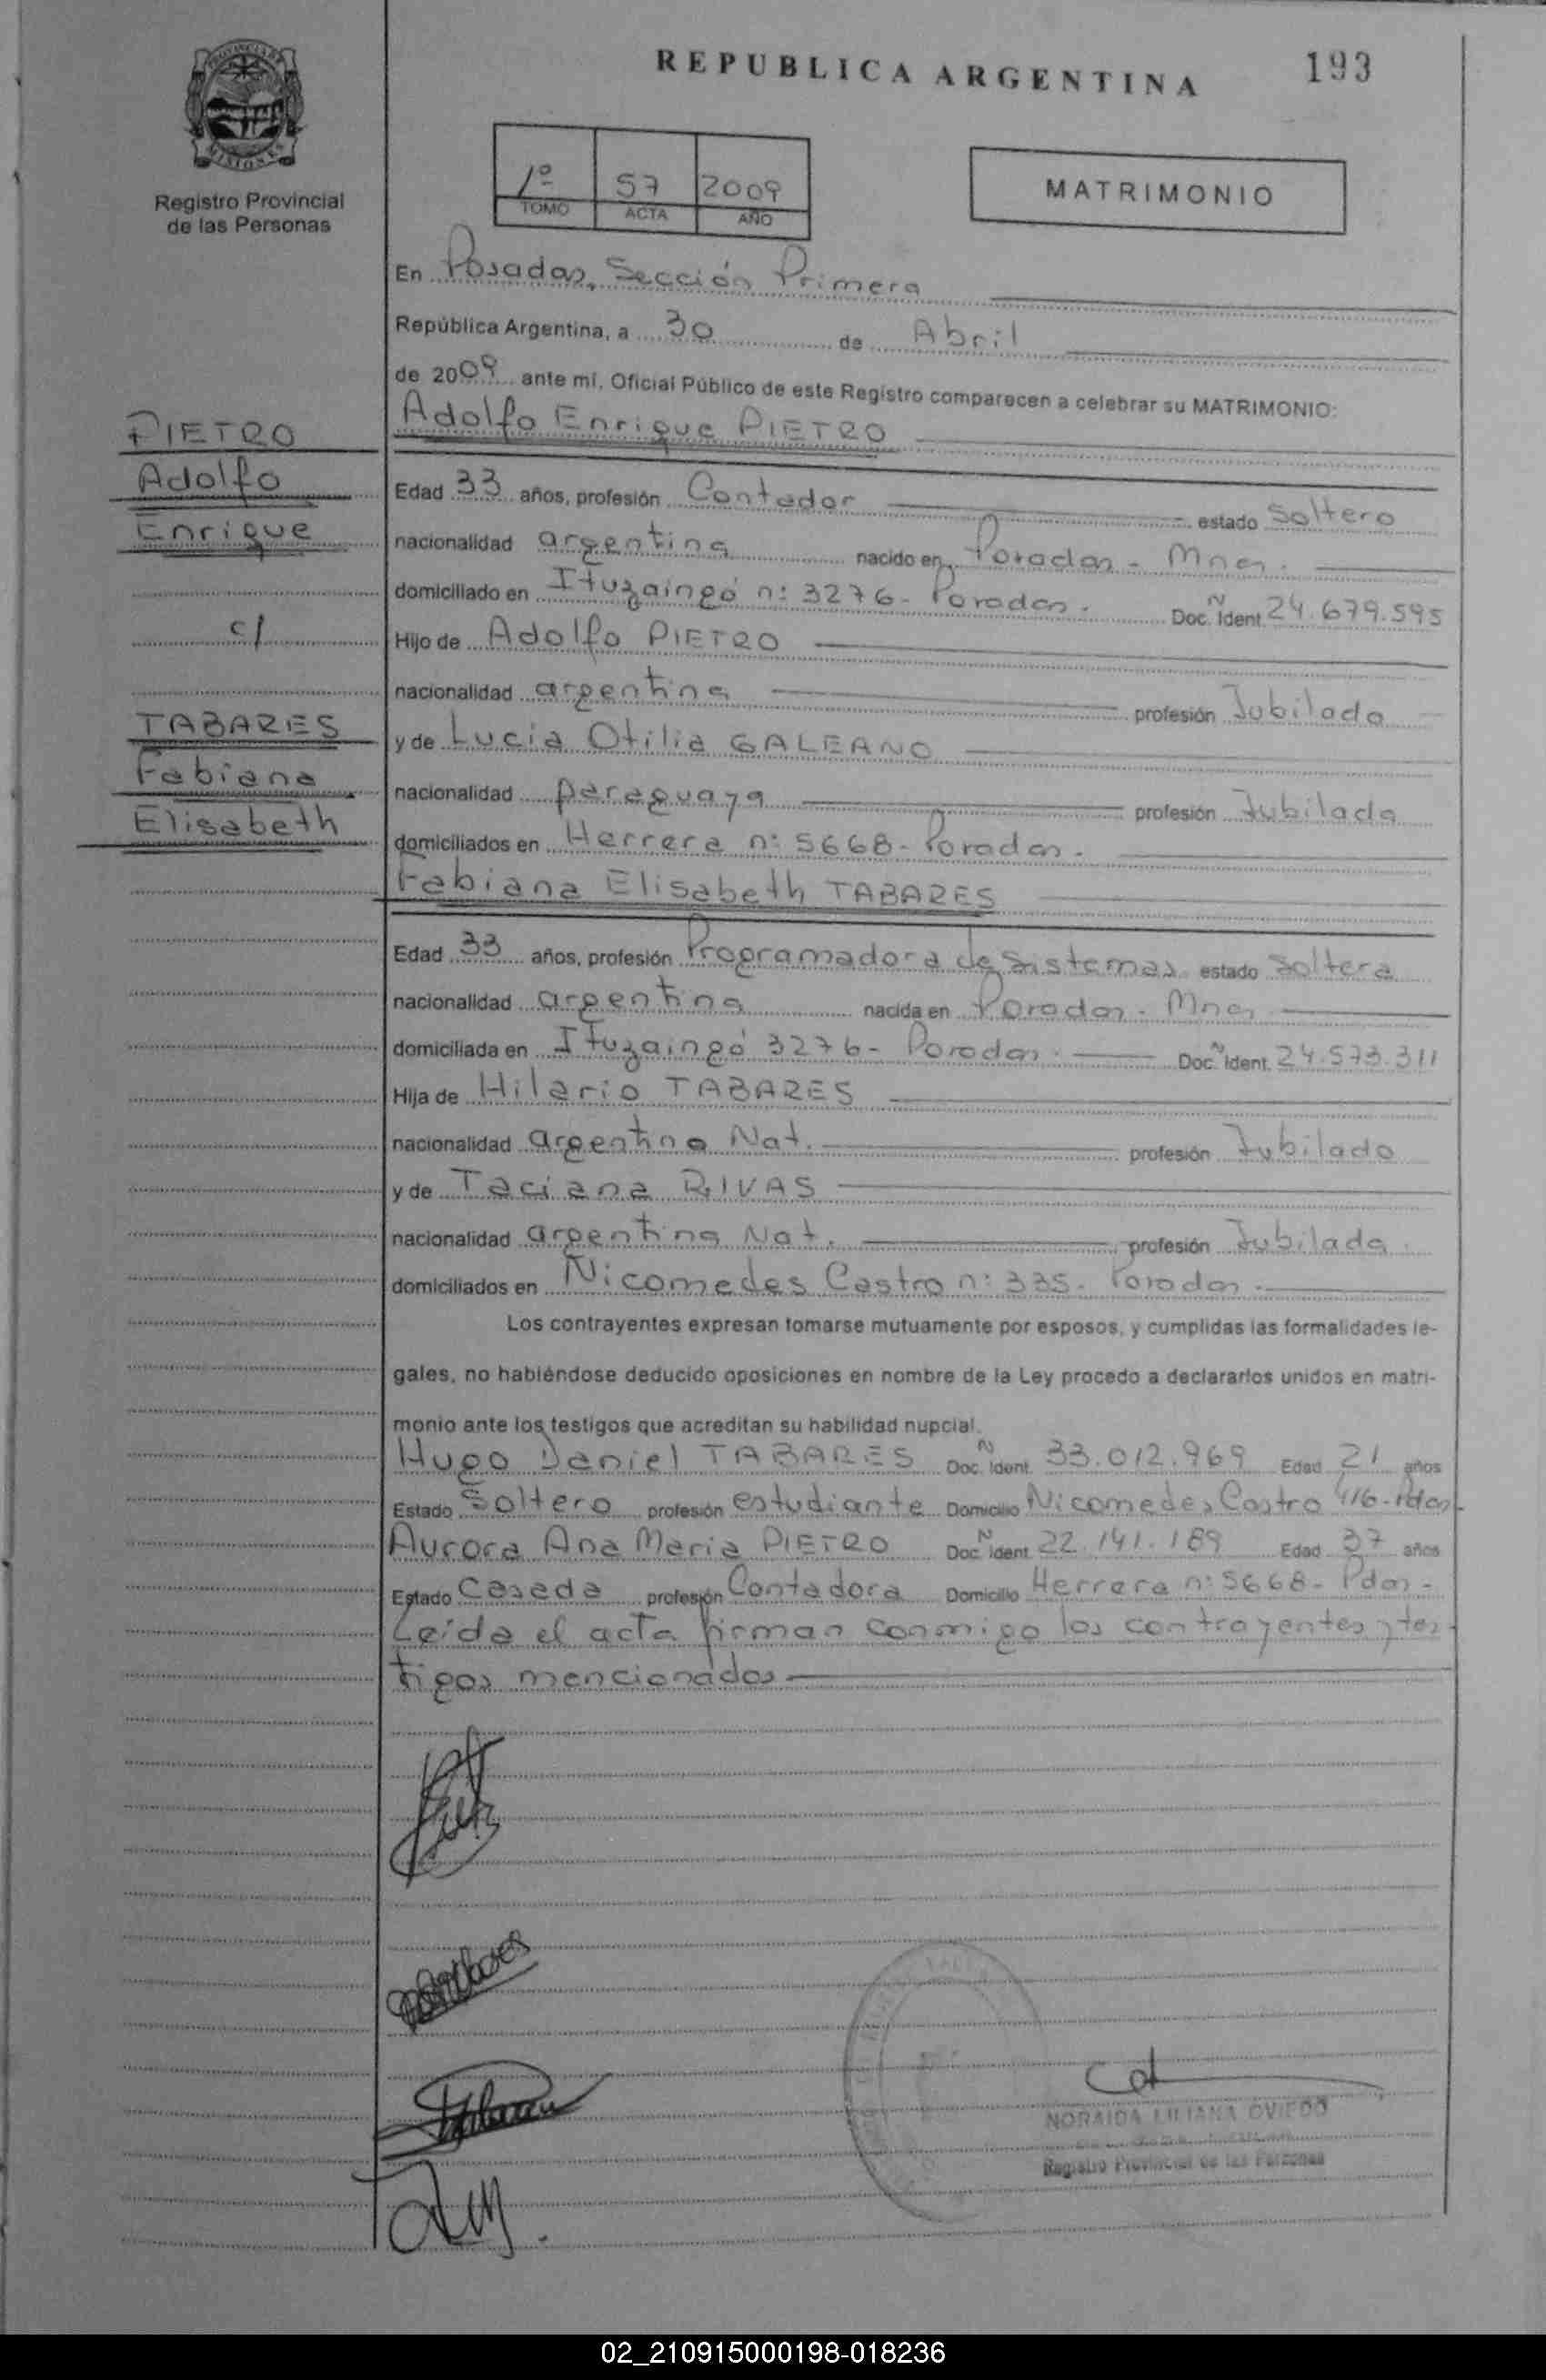 REPUBLICA ARGENTINA
193
PROVINCIA DE MISIONES
Registro Provincial
de las Personas
1º 57 2009
TOMO ACTA AÑO
MATRIMONIO
En Posadas, Sección Primera
República Argentina, a 30 de Abril
de 2009 ante mí, Oficial Público de este Registro comparecen a celebrar su MATRIMONIO:
PIETRO
Adolfo
Enrique
c/
TABARES
Fabiana
Elisabeth
Adolfo Enrique PIETRO
Edad 33 años, profesión Contador estado Soltero
nacionalidad argentina nacido en Posadas - Mnes.
domiciliado en Ituzaingó nº 3276 - Posadas. Doc. Ident. Nº 24.679.595
Hijo de Adolfo PIETRO
nacionalidad argentina profesión Jubilado
y de Lucia Otilia GALEANO
nacionalidad paraguaya profesión Jubilada
domiciliados en Herrera nº 5668 - Posadas.
Fabiana Elisabeth TABARES
Edad 33 años, profesión Programadora de Sistemas estado Soltera
nacionalidad argentina nacida en Posadas - Mnes
domiciliada en Ituzaingó 3276 - Posadas. Doc. Ident. Nº 24.573.311
Hija de Hilario TABARES
nacionalidad argentino Nat. profesión Jubilado
y de Taciana RIVAS
nacionalidad argentina Nat. profesión Jubilada.
domiciliados en Nicomedes Castro nº 335 - Posadas.
Los contrayentes expresan tomarse mutuamente por esposos, y cumplidas las formalidades le-
gales, no habiéndose deducido oposiciones en nombre de la Ley procedo a declararlos unidos en matri-
monio ante los testigos que acreditan su habilidad nupcial.
Hugo Daniel TABARES Doc. Ident. Nº 33.012.969 Edad 21 años
Estado Soltero profesión estudiante Domicilio Nicomedes Castro 416 - Pdas
Aurora Ana Maria PIETRO Doc. Ident. Nº 22.141.189 Edad 37 años
Estado Casada profesión Contadora Domicilio Herrera nº 5668 - Pdas -
Leída el acta firman conmigo los contrayentes y tes-
tigos mencionados
NORAIDA LILIANA OVIEDO
Registro Provincial de las Personas
02_210915000198-018236